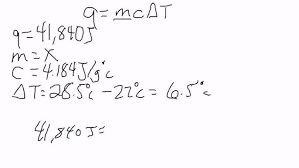 q = mcΔT
q = 41,840J
m = x
C = 4.184 J/g°c
ΔT = 28.5°c - 22°c = 6.5°c
41,840J =